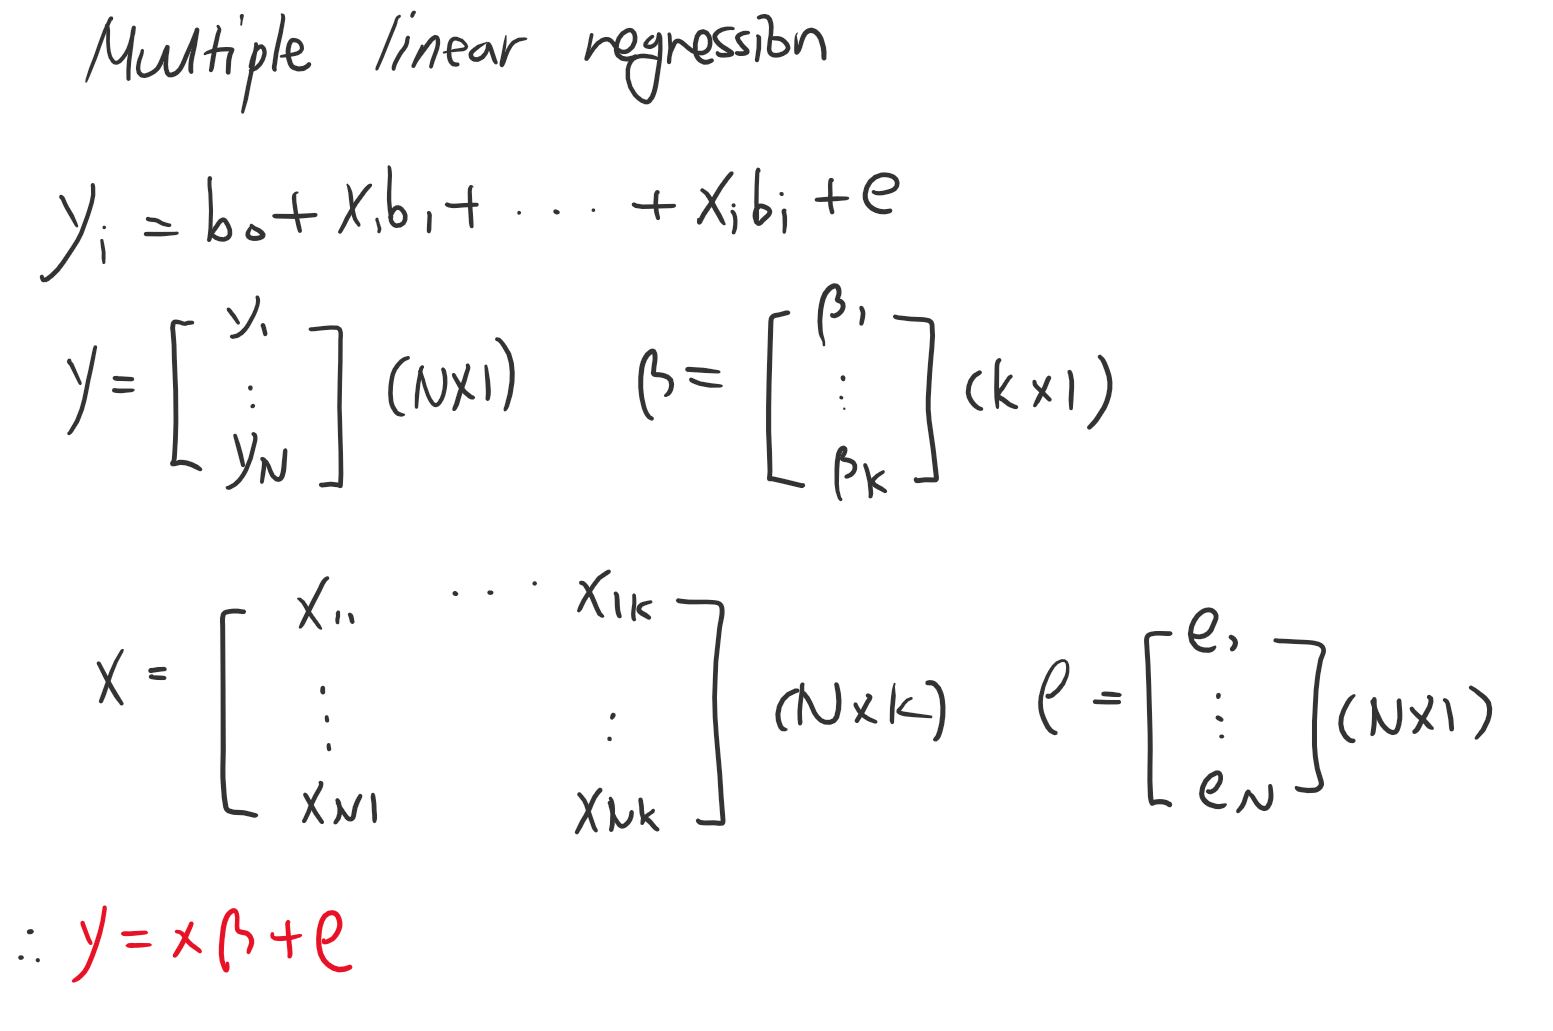 Multiple linear regression
yᵢ = b₀ + x₁b₁ + ... + xᵢbᵢ + e
y = [y₁ ⋮ y_N] (N×1) β = [β₁ ⋮ β_K] (k×1)
x = [x₁₁ ... x₁ₖ ⋮ ⋮ x_N1 x_Nk] (N×K) e = [e₁ ⋮ e_N] (N×1)
∴ y = xβ + e